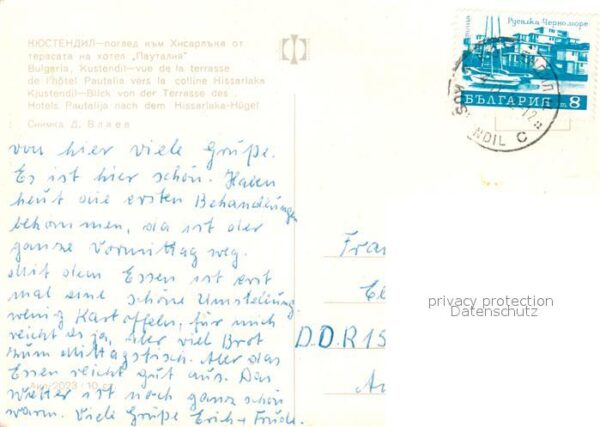 КЮСТЕНДИЛ—поглед към Хисарлъка от
терасата на хотел „Пауталия"
Bulgaria, Kustendil—vue de la terrasse
de l'hôtel Pautalia vers la colline Hissarlaka
Kjustendil—Blick von der Terrasse des
Hotels Pautalija nach dem Hissarlaka-Hügel
Снимка Д. Влаев
von hier viele Grüße.
Es ist hier schön. Haben
heut die ersten Behandlungen
bekommen, da ist der
ganze Vormittag weg.
Mit dem Essen ist erst
mal eine schöne Umstellung.
wenig Kartoffeln, für mich
reicht es ja, aber viel Brot
zum Mittagstisch. Aber das
Essen reicht gut aus. Das
Wetter ist noch ganz schön
warm. Viele Grüße Erich + Trude.
Акю-2023
Русалка Черноморе
БЪЛГАРИЯ ст 8
NDIL C
Fra
DDR 15
privacy protection
Datenschutz